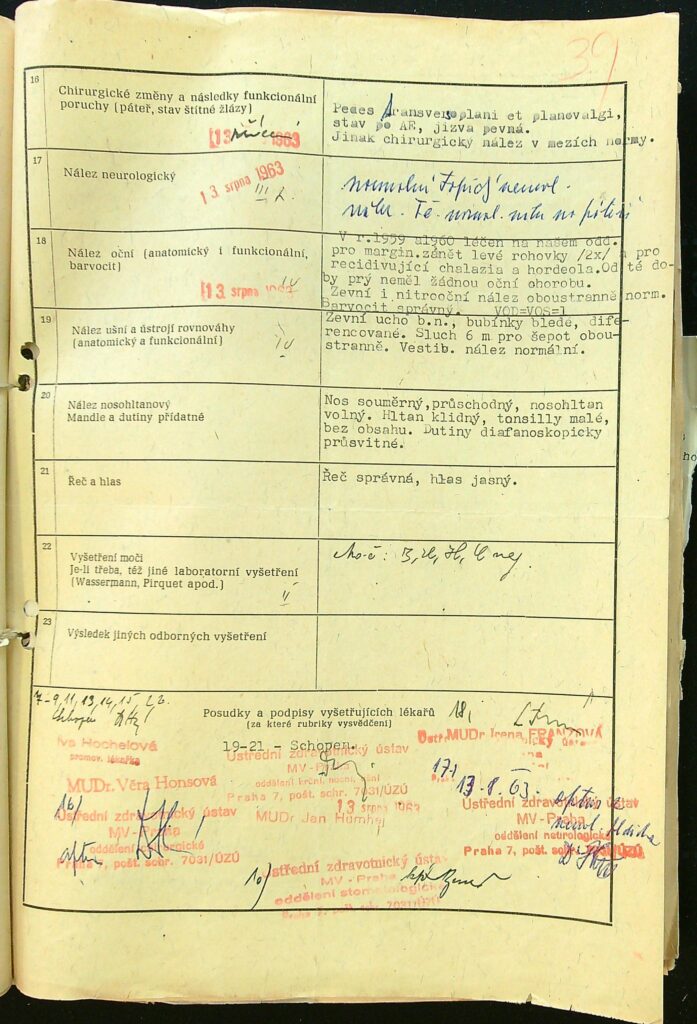 39
16
Chirurgické změny a následky funkcionální
poruchy (páteř, stav štítné žlázy)
13 1963
Pedes transversoplani et planovalgi,
stav po AE, jizva pevná.
Jinak chirurgický nález v mezích normy.
17
Nález neurologický
13 srpna 1963
normální
18
Nález oční (anatomický i funkcionální,
barvocit)
13 srpna 1963
V r.1959 a1960 léčen na našem odd.
pro margin.zánět levé rohovky /2x/ a pro
recidivující chalazia a hordeola.Od té do-
by prý neměl žádnou oční ohorobu.
Zevní i nitrooční nález oboustranně norm.
Barvocit správný. VOD=VOS=1
19
Nález ušní a ústrojí rovnováhy
(anatomický a funkcionální)
Zevní ucho b.n., bubínky bledé, dife-
rencované. Sluch 6 m pro šepot obou-
stranně. Vestib. nález normální.
20
Nález nosohltanový
Mandle a dutiny přídatné
Nos souměrný,průschodný, nosohltan
volný. Hltan klidný, tonsilly malé,
bez obsahu. Dutiny diafanoskopicky
průsvitné.
21
Řeč a hlas
Řeč správná, hlas jasný.
22
Vyšetření moči
Je-li třeba, též jiné laboratorní vyšetření
(Wassermann, Pirquet apod.)
Moč: B, U, H, neg.
23
Výsledek jiných odborných vyšetření
7-9,11,13,14,15,22
Posudky a podpisy vyšetřujících lékařů
(za které rubriky vysvědčení)
18/
MUDr. Irena FRANZOVÁ
19-21 - Schopen.
Iva Hochelová
promov. lékařka
Ústřední zdravotnický ústav
MV-Praha
oddělení krční, nosní, ušní
Praha 7, pošt. schr. 7031/ÚZÚ
13 srpna 1963
MUDr Jan
17/
13.8.63.
MUDr. Věra Honsová
16/
Ústřední zdravotnický ústav
MV-Praha
oddělení chirurgické
Praha 7, pošt. schr. 7031/ÚZÚ
Ústřední zdravotnický ústav
MV-Praha
oddělení neurologické
Praha 7, pošt. schr. 7031/ÚZÚ
10/
Ústřední zdravotnický ústav
MV-Praha
oddělení stomatologické
Praha 7, pošt. schr. 7031/ÚZÚ